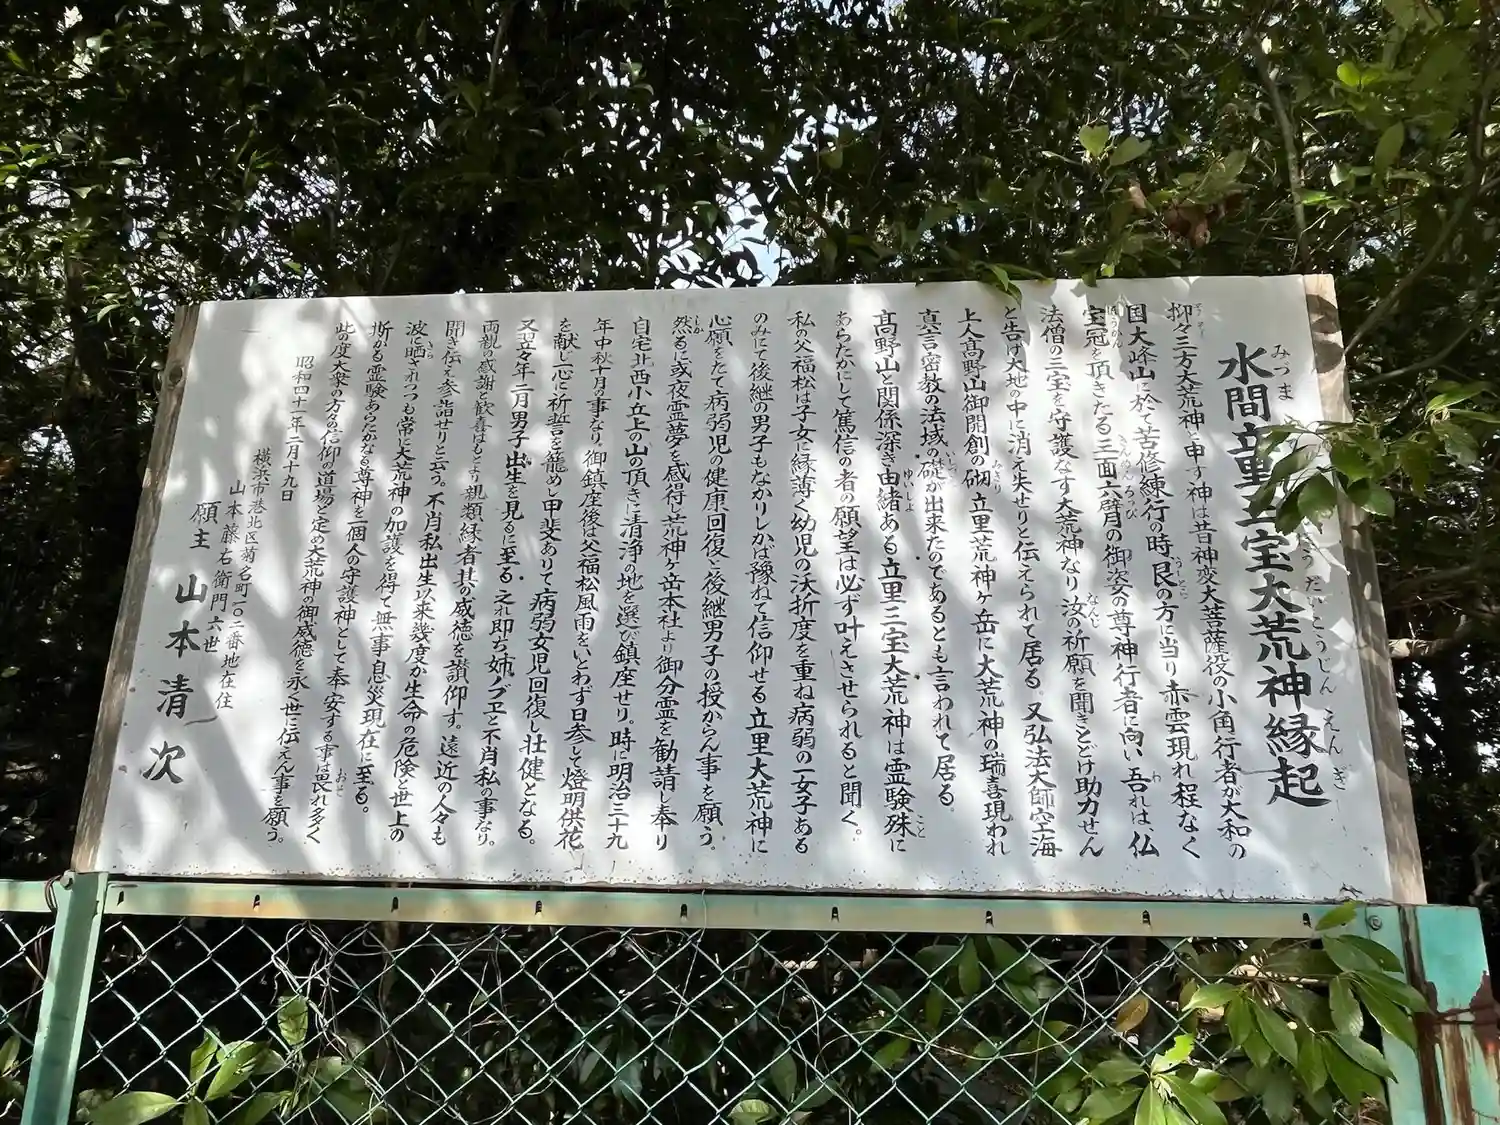 水間童三宝大荒神縁起
抑々三方大荒神と申す神は昔神変大菩薩役の小角行者が大和の
国大峰山に於て苦修練行の時艮の方に当り赤雲現れ程なく
宝冠を頂きたる三面六臂の御姿の尊神行者に向い吾れは、仏
法僧の三宝を守護なす大荒神なり汝の祈願を聞きとどけ助力せん
と告げ大地の中に消え失せりと伝えられて居る。又弘法大師空海
上人高野山御開創の砌立里荒神ヶ岳に大荒神の瑞喜現われ
真言密教の法域の礎が出来たのであるとも言われて居る。
高野山と関係深き由緒ある立里三宝大荒神は霊験殊に
あらたかにして篤信の者の願望は必ず叶えさせられると聞く。
私の父福松は子女に縁薄く幼児の夭折度を重ね病弱の一女子ある
のみにて後継の男子もなかりしかば豫ねて信仰せる立里大荒神に
心願をたて病弱児の健康回復と後継男子の授からん事を願う。
然るに或夜霊夢を感得し荒神ヶ岳本社より御分霊を勧請し奉り
自宅北西小丘上の山の頂きに清浄の地を選び鎮座せり。時に明治三十九
年中秋十月の事なり。御鎮座後は父福松風雨をいとわず日参して燈明供花
を献じ一心に祈誓を籠めし甲斐ありて病弱女児回復し壮健となる。
又翌々年二月男子出生を見るに至る。之れ即ち姉ノブヱと不肖私の事なり。
両親の感謝と歓喜はもとより親類縁者其の威徳を讃仰す。遠近の人々も
聞き伝え参詣せりと云う。不肖私出生以来幾度か生命の危険と世上の
波に晒されつつも常に大荒神の加護を得て無事息災現在に至る。
斯かる霊験あらたかなる尊神を一個人の守護神として奉安する事畏れ多く
此の度大衆の方の信仰の道場と定め大荒神の御威徳を永く世に伝えん事を願う。
昭和四十一年二月十九日
横浜市港北区菊名町一〇二番地在住
山本藤右衛門六世
願主 山本清次